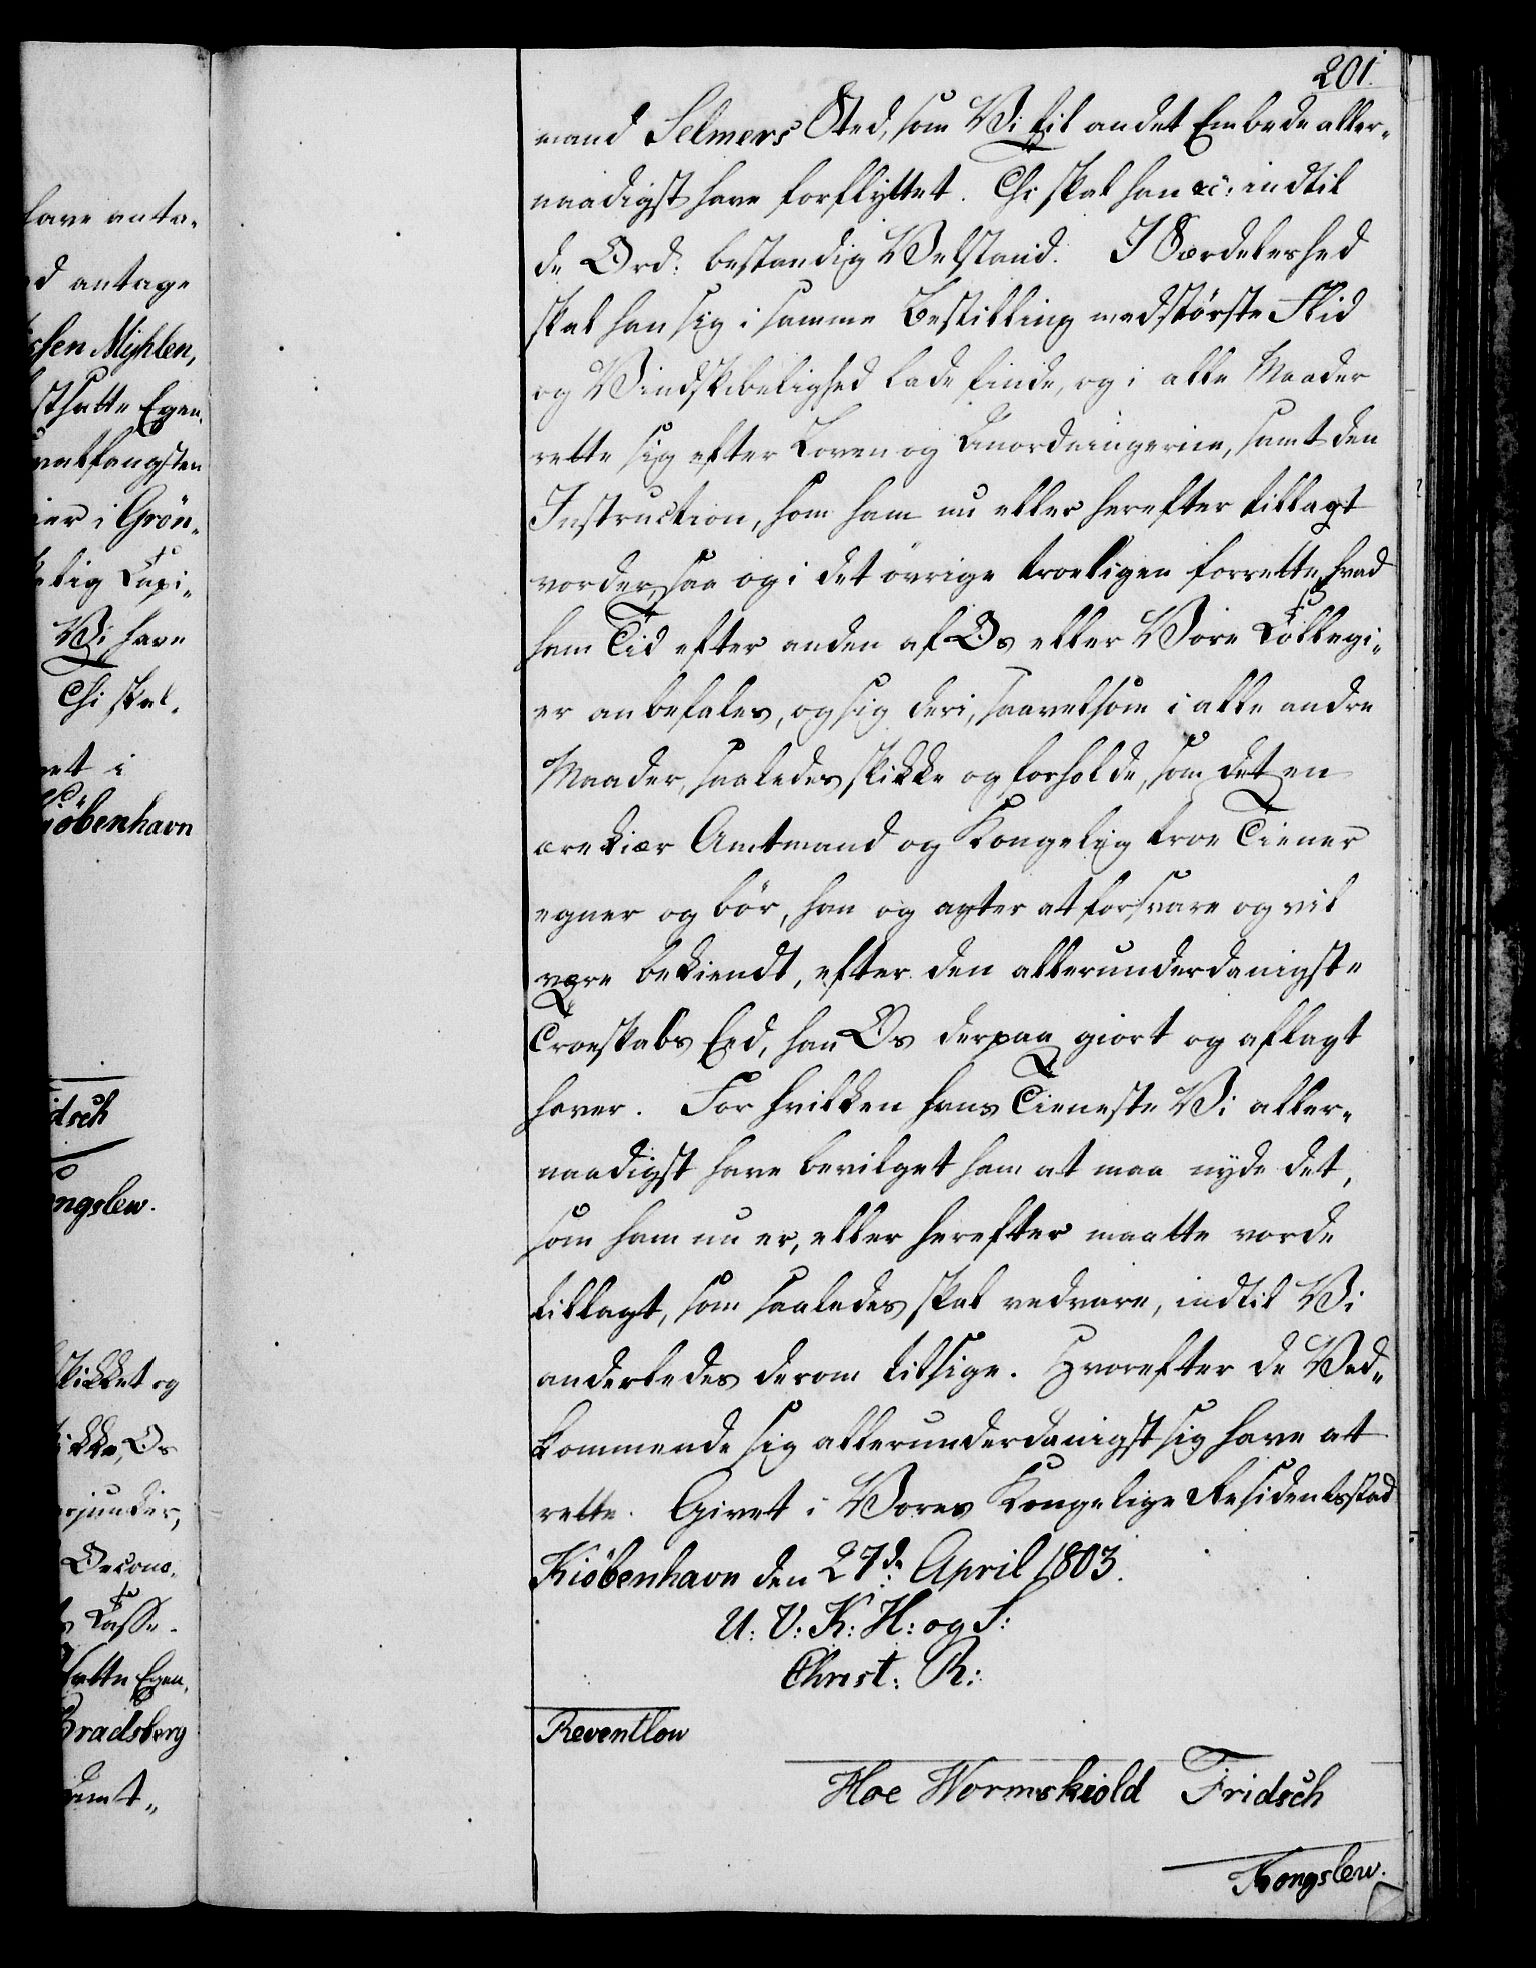 201.
mand Selmers Sted, som Vi til andet Embede aller-
naadigst have forflyttet. Thi skal han &c. indtil
de Ord: bestandig Velstand. I Særdeleshed
skal han sig i samme Bestilling med største Flid
og Vindskibelighed lade finde, og i alle Maader
rette sig efter Loven og Anordningerne, samt den
Instruction, som ham nu eller herefter tillagt
vorder, saa og i det øvrige troeligen forrette, hvad
ham Tid efter anden af Os eller Vore Collegi-
er anbefales, og sig deri, saavelsom i alle andre
Maader, saaledes skikke og forholde, som det en
ærekiær Amtmand og Kongelig troe Tiener
egner og bør, han og agter at forsvare og vil
være bekiendt, efter den allerunderdanigste
Troeskabs Eed, han Os derpaa giort og aflagt
haver. For hvilken hans Tieneste Vi aller-
naadigst have bevilget ham at maa nyde det,
som ham nu er, eller herefter maatte vorde
tillagt, som saaledes skal vedvare, indtil Vi
anderledes derom tilsige. Hvorefter de Ved-
kommende sig allerunderdanigst sig have at
rette. Givet i Vores Kongelige Residentsstad
Kiöbenhavn den 27de April 1803.
U: V: K: H: og S:
Christ: R:
Reventlow
Hoe Wormskiold Fridsch
Kongslew.
have anta-
antage
Myhlen,
Egen-
i Grön-
Vi have
Thi skal.
i
Kiöbenhavn
skikket og
Os
Casse.
Egen-
Bradsberg
Amt-